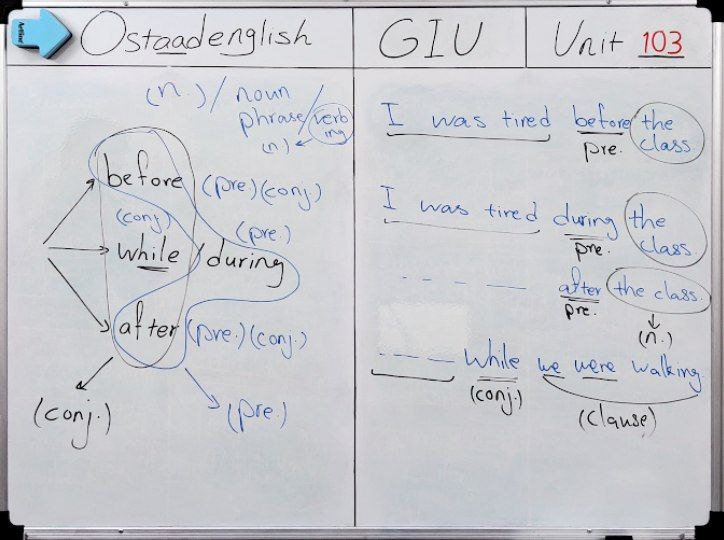 Artline
Ostaadenglish
GIU
Unit 103
(n.) / noun
phrase / verb
ing
(n)
before (pre)(conj)
(conj) (pre.)
while / during
after (pre.)(conj.)
(conj.) (pre.)
I was tired before the
class
pre.
I was tired during the
class.
pre.
_ _ _ _ after the class.
pre.
(n.)
_ _ _ while we were walking.
(conj.)
(clause)